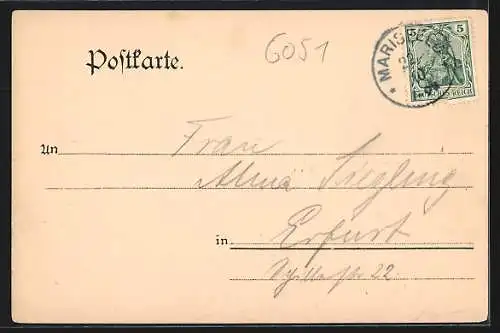 6051
5 5
MARIS
DEUTSCHES REICH
Postkarte.
An Frau
Alma Siegling
in Erfurt
Schillerstr 22.